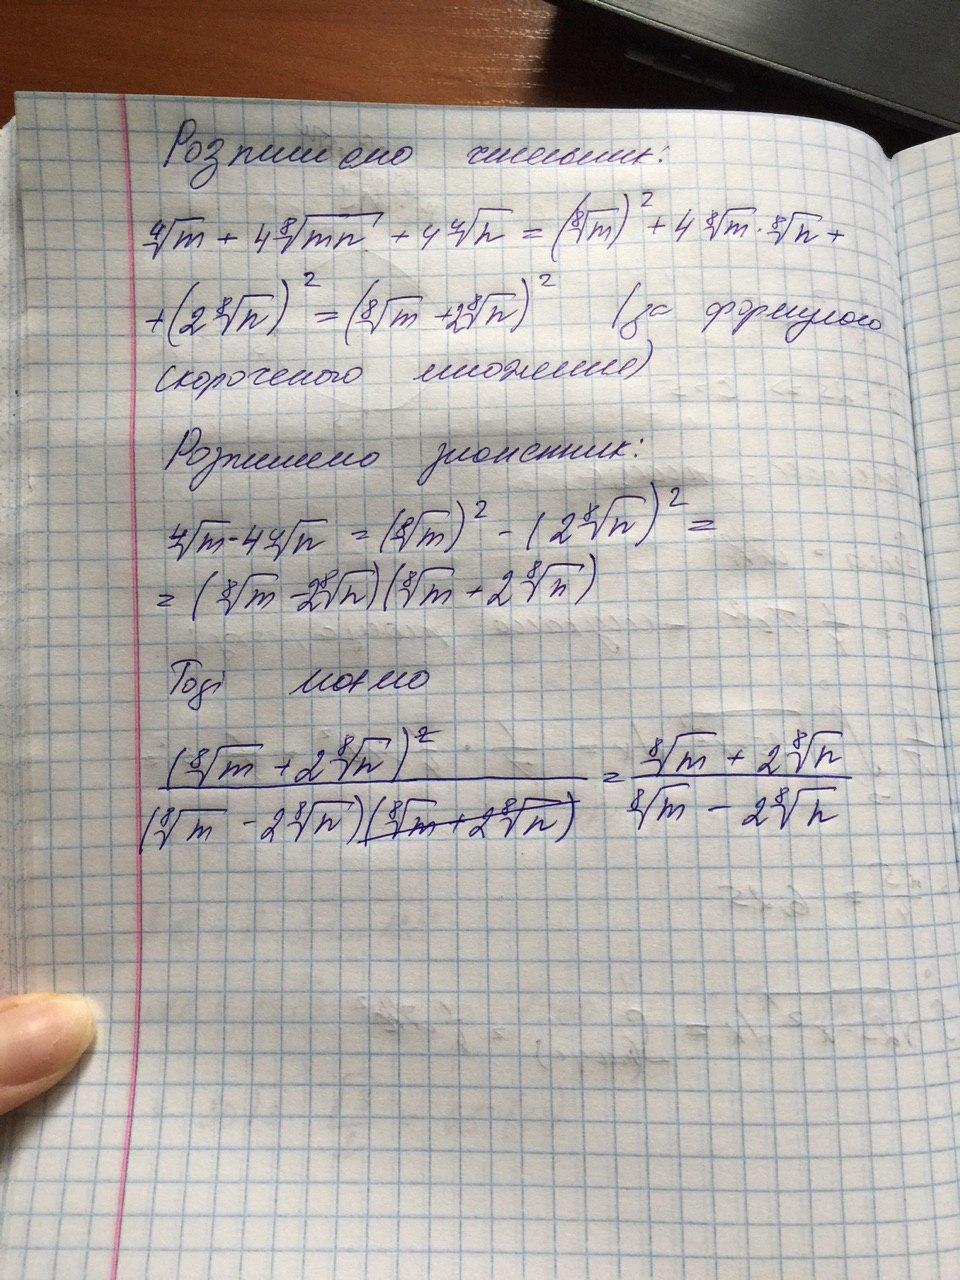 Розпишемо чисельник:
⁴√m + 4⁸√mn + 4⁴√n = (⁸√m)² + 4⁸√m · ⁸√n +
+ (2⁸√n)² = (⁸√m + 2⁸√n)² (за формулою
скороченого множення)
Розпишемо знаменник:
⁴√m - 4⁴√n = (⁸√m)² - (2⁸√n)² =
= (⁸√m - 2⁸√n)(⁸√m + 2⁸√n)
Тоді маємо
(⁸√m + 2⁸√n)² / (⁸√m - 2⁸√n)(⁸√m + 2⁸√n) = ⁸√m + 2⁸√n / ⁸√m - 2⁸√n